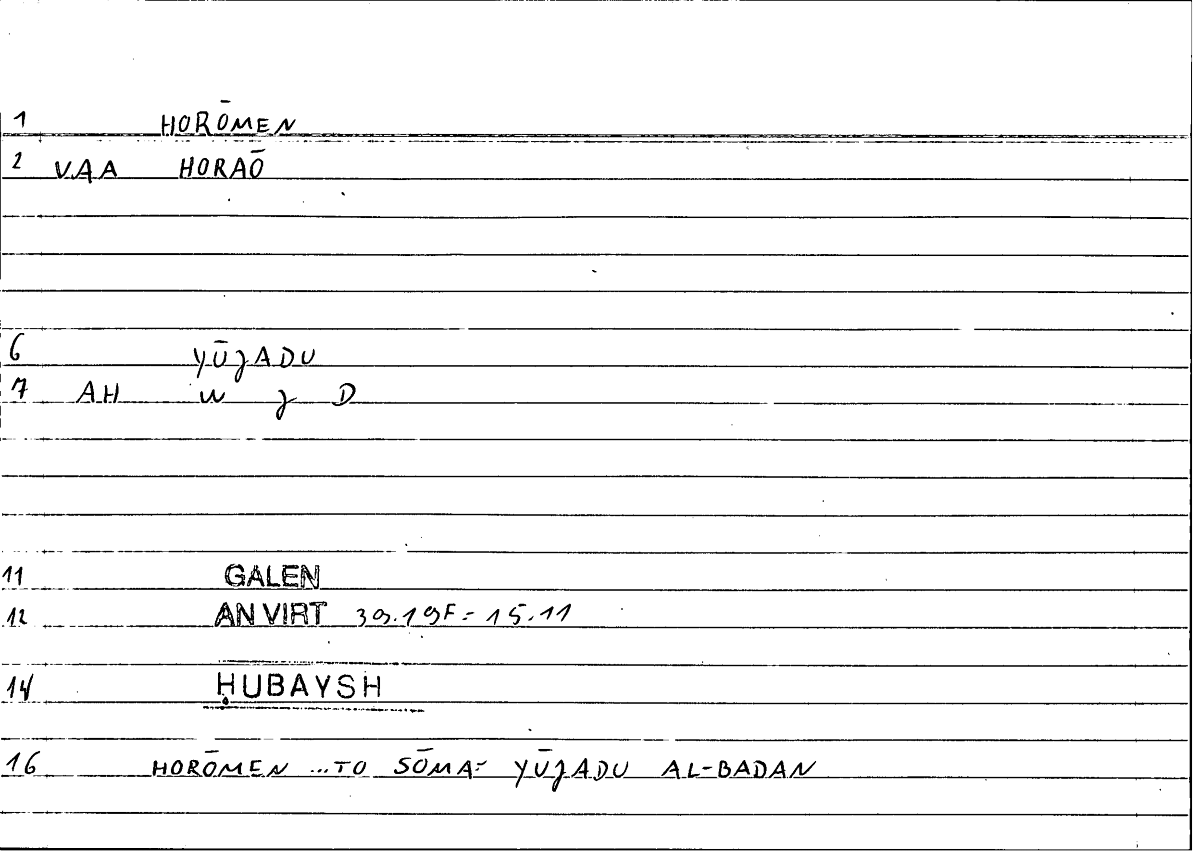 1 HORŌMEN
2 VAA HORAŌ
6 YŪJADU
7 AH W J D
11 GALEN
12 AN VIRT 39.19F = 15.11
14 ḤUBAYSH
16 HORŌMEN ...TO SŌMA = YŪJADU AL-BADAN